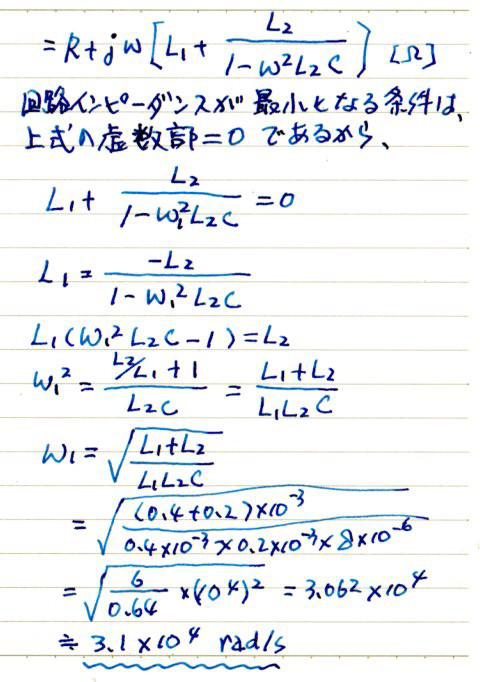 = R + jω [ L₁ + L₂ / (1 - ω²L₂C) ] [Ω]
回路インピーダンスが最小となる条件は、
上式の虚数部=0 であるから、
L₁ + L₂ / (1 - ω₁²L₂C) = 0
L₁ = -L₂ / (1 - ω₁²L₂C)
L₁(ω₁²L₂C - 1) = L₂
ω₁² = (L₂/L₁ + 1) / (L₂C) = (L₁ + L₂) / (L₁L₂C)
ω₁ = √((L₁ + L₂) / (L₁L₂C))
= √((0.4 + 0.2)×10⁻³ / (0.4×10⁻³ × 0.2×10⁻³ × 8×10⁻⁶))
= √(6 / 0.64 × (10⁴)²) = 3.062×10⁴
≒ 3.1×10⁴ rad/s